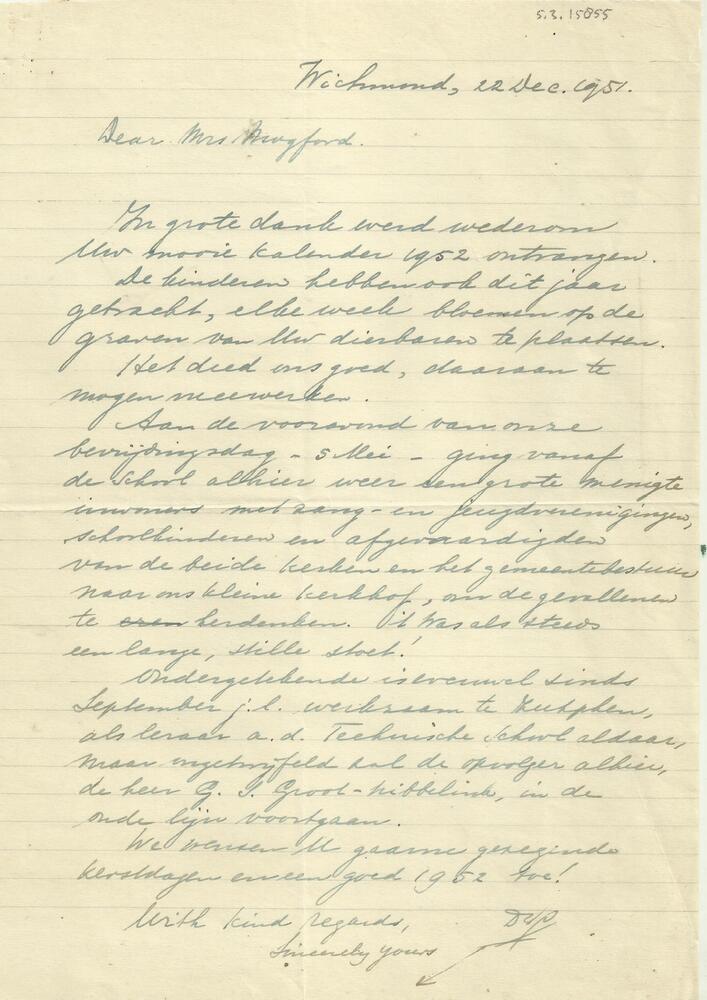 5.3.15855
Wichmond, 22 Dec. 1951.
Dear Mrs Mugford.
In grote dank werd wederom
Uw mooie kalender 1952 ontvangen.
De kinderen hebben ook dit jaar
getracht, elke week bloemen op de
graven van Uw dierbaren te plaatsen.
Het deed ons goed, daaraan te
mogen meewerken.
Aan de vooravond van onze
bevrijdingsdag - 5 Mei - ging vanaf
de school alhier weer een grote menigte
inwoners met zang- en jeugdverenigingen,
schoolkinderen en afgevaardigden
van de beide kerken en het gemeentebestuur
naar ons kleine kerkhof, om de gevallenen
te herdenken. 't Was als steeds
een lange, stille stoet!
Ondergetekende is evenwel sinds
September j.l. werkzaam te Zutphen,
als leraar a.d. Technische School aldaar,
maar ongetwijfeld zal de opvolger alhier,
de heer G. J. Groot-Nibbelink, in de
oude lijn voortgaan.
We wensen U gaarne gezegende
kerstdagen en een goed 1952 toe!
With kind regards,
Sincerely yours